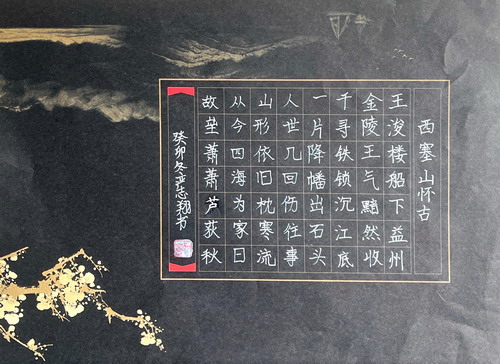 西塞山怀古
王浚楼船下益州
金陵王气黯然收
千寻铁锁沉江底
一片降幡出石头
人世几回伤往事
山形依旧枕寒流
从今四海为家日
故垒萧萧芦荻秋
癸卯冬尹志翔书